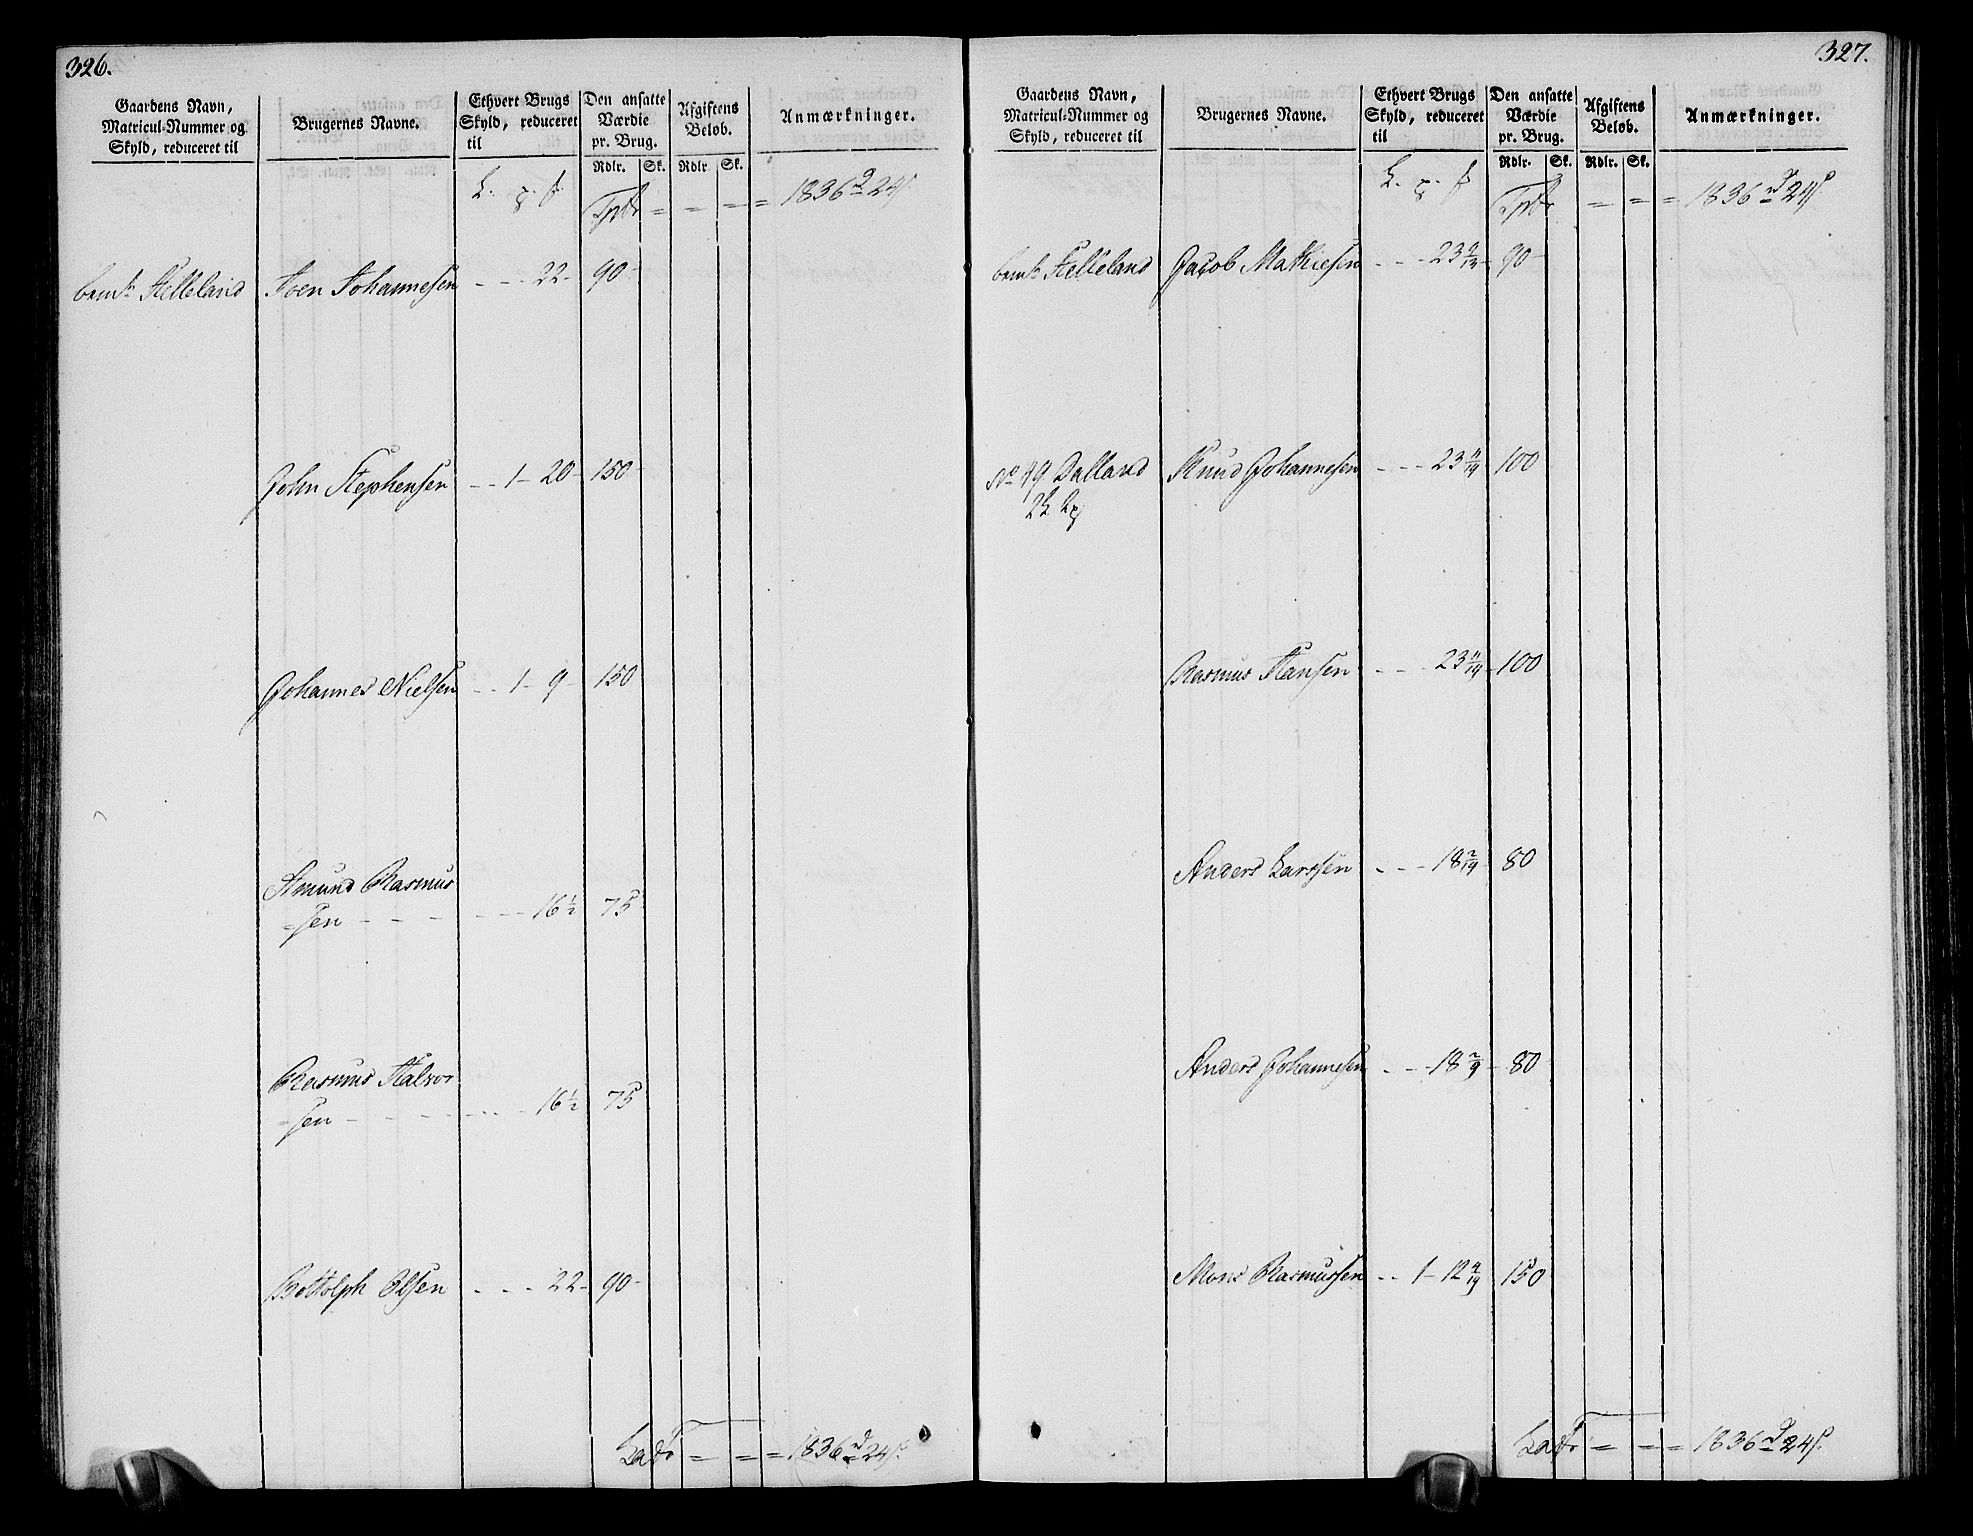 326.
Gaardens Navn,
Matricul-Nummer og
Skyld, reduceret til
Brugernes Navne.
Ethvert Brugs
Skyld, reduceret
til
Den ansatte
Værdie
pr. Brug.
Rdlr. Sk.
Afgiftens
Beløb.
Rdlr. Sk.
Anmærkninger.
Tpdr = = = = 1836 d 24 s.
bemte Helleland Iver Johannesen - - - 22 - 90 -
John Stephensen - - 1 - 20 - 150 -
Johannes Nielsen - - 1 - 9 - 150
Amund Rasmus
=sen - - - - - - 16 1/2 75 -
Rasmus Halvor
=sen - - - - - - 16 1/2 75
Bottolph Olsen - - - 22 - 90 -
Ladr = = = 1836 d 24 s.
327.
Gaardens Navn,
Matricul-Nummer og
Skyld, reduceret til
Brugernes Navne.
Ethvert Brugs
Skyld, reduceret
til
Den ansatte
Værdie
pr. Brug.
Rdlr. Sk.
Afgiftens
Beløb.
Rdlr. Sk.
Anmærkninger.
Tpdr = = = 1836 d 24 s
bemte Helleland Jacob Mathiesen - - - 23 90 -
No 49 Dalland Knud Johannesen - - - 23 11/19 100
Rasmus Hansen - - - 23 11/19 - 100
Anders Larssen - - - 18 2/19 80
Anders Johannesen - - - 18 2/9 - 80
Mons Rasmussen - - 1 - 12 4/19 150
Ladr = = = 1836 d 24 s.